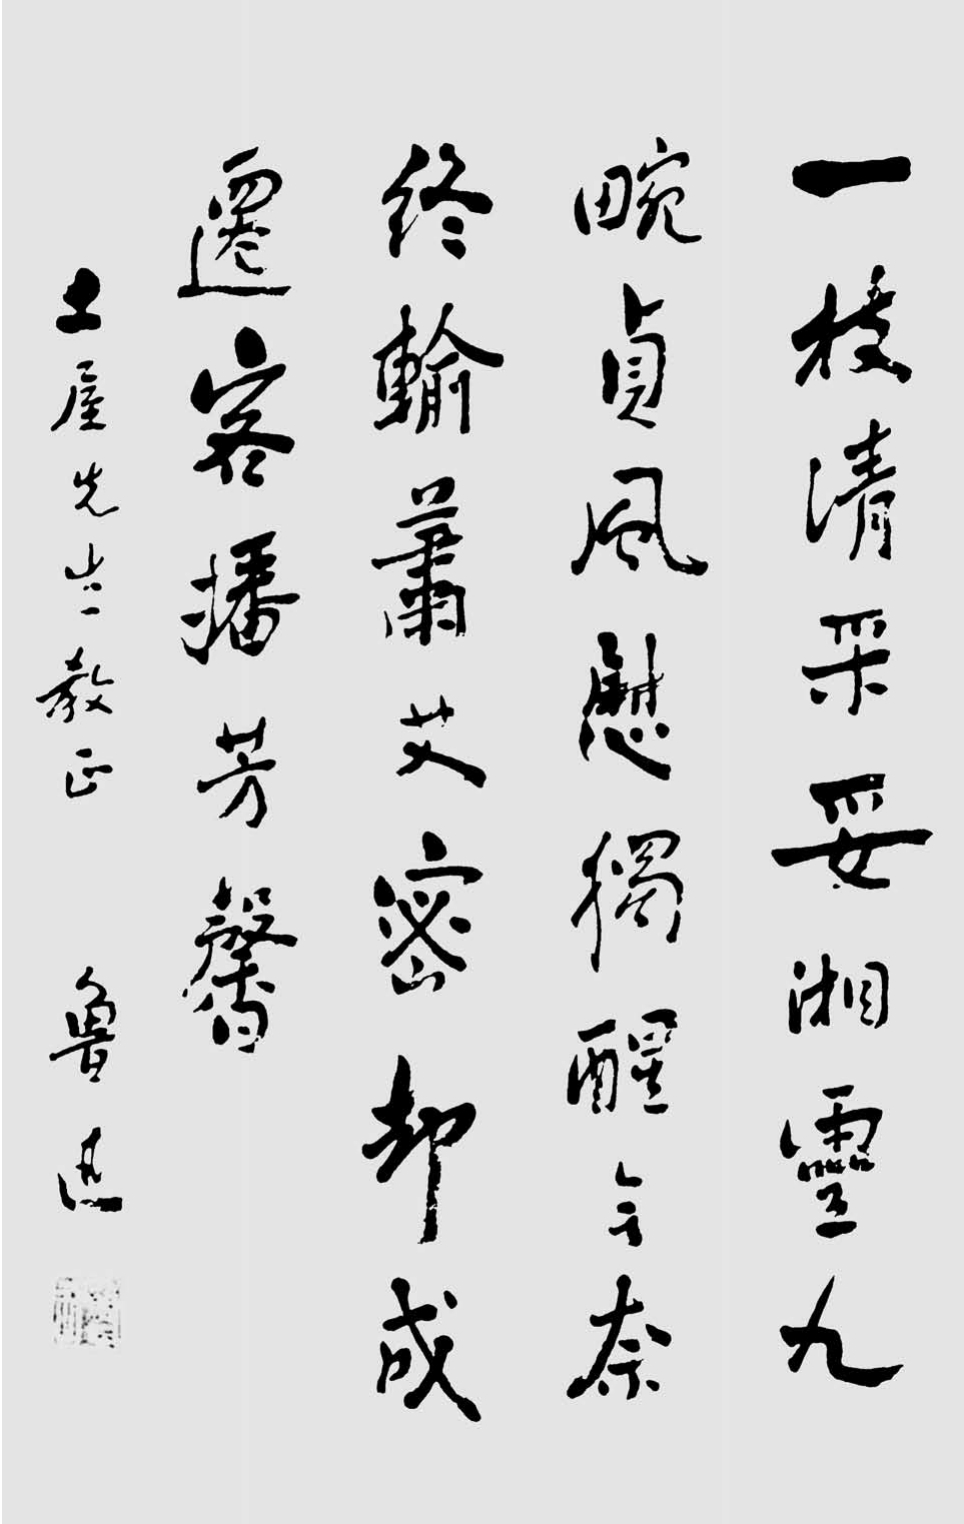 一枝清采妥湘靈九
畹貞風慰獨醒無奈
終輸蕭艾密却成
遷客播芳馨
土屋先生教正 魯迅